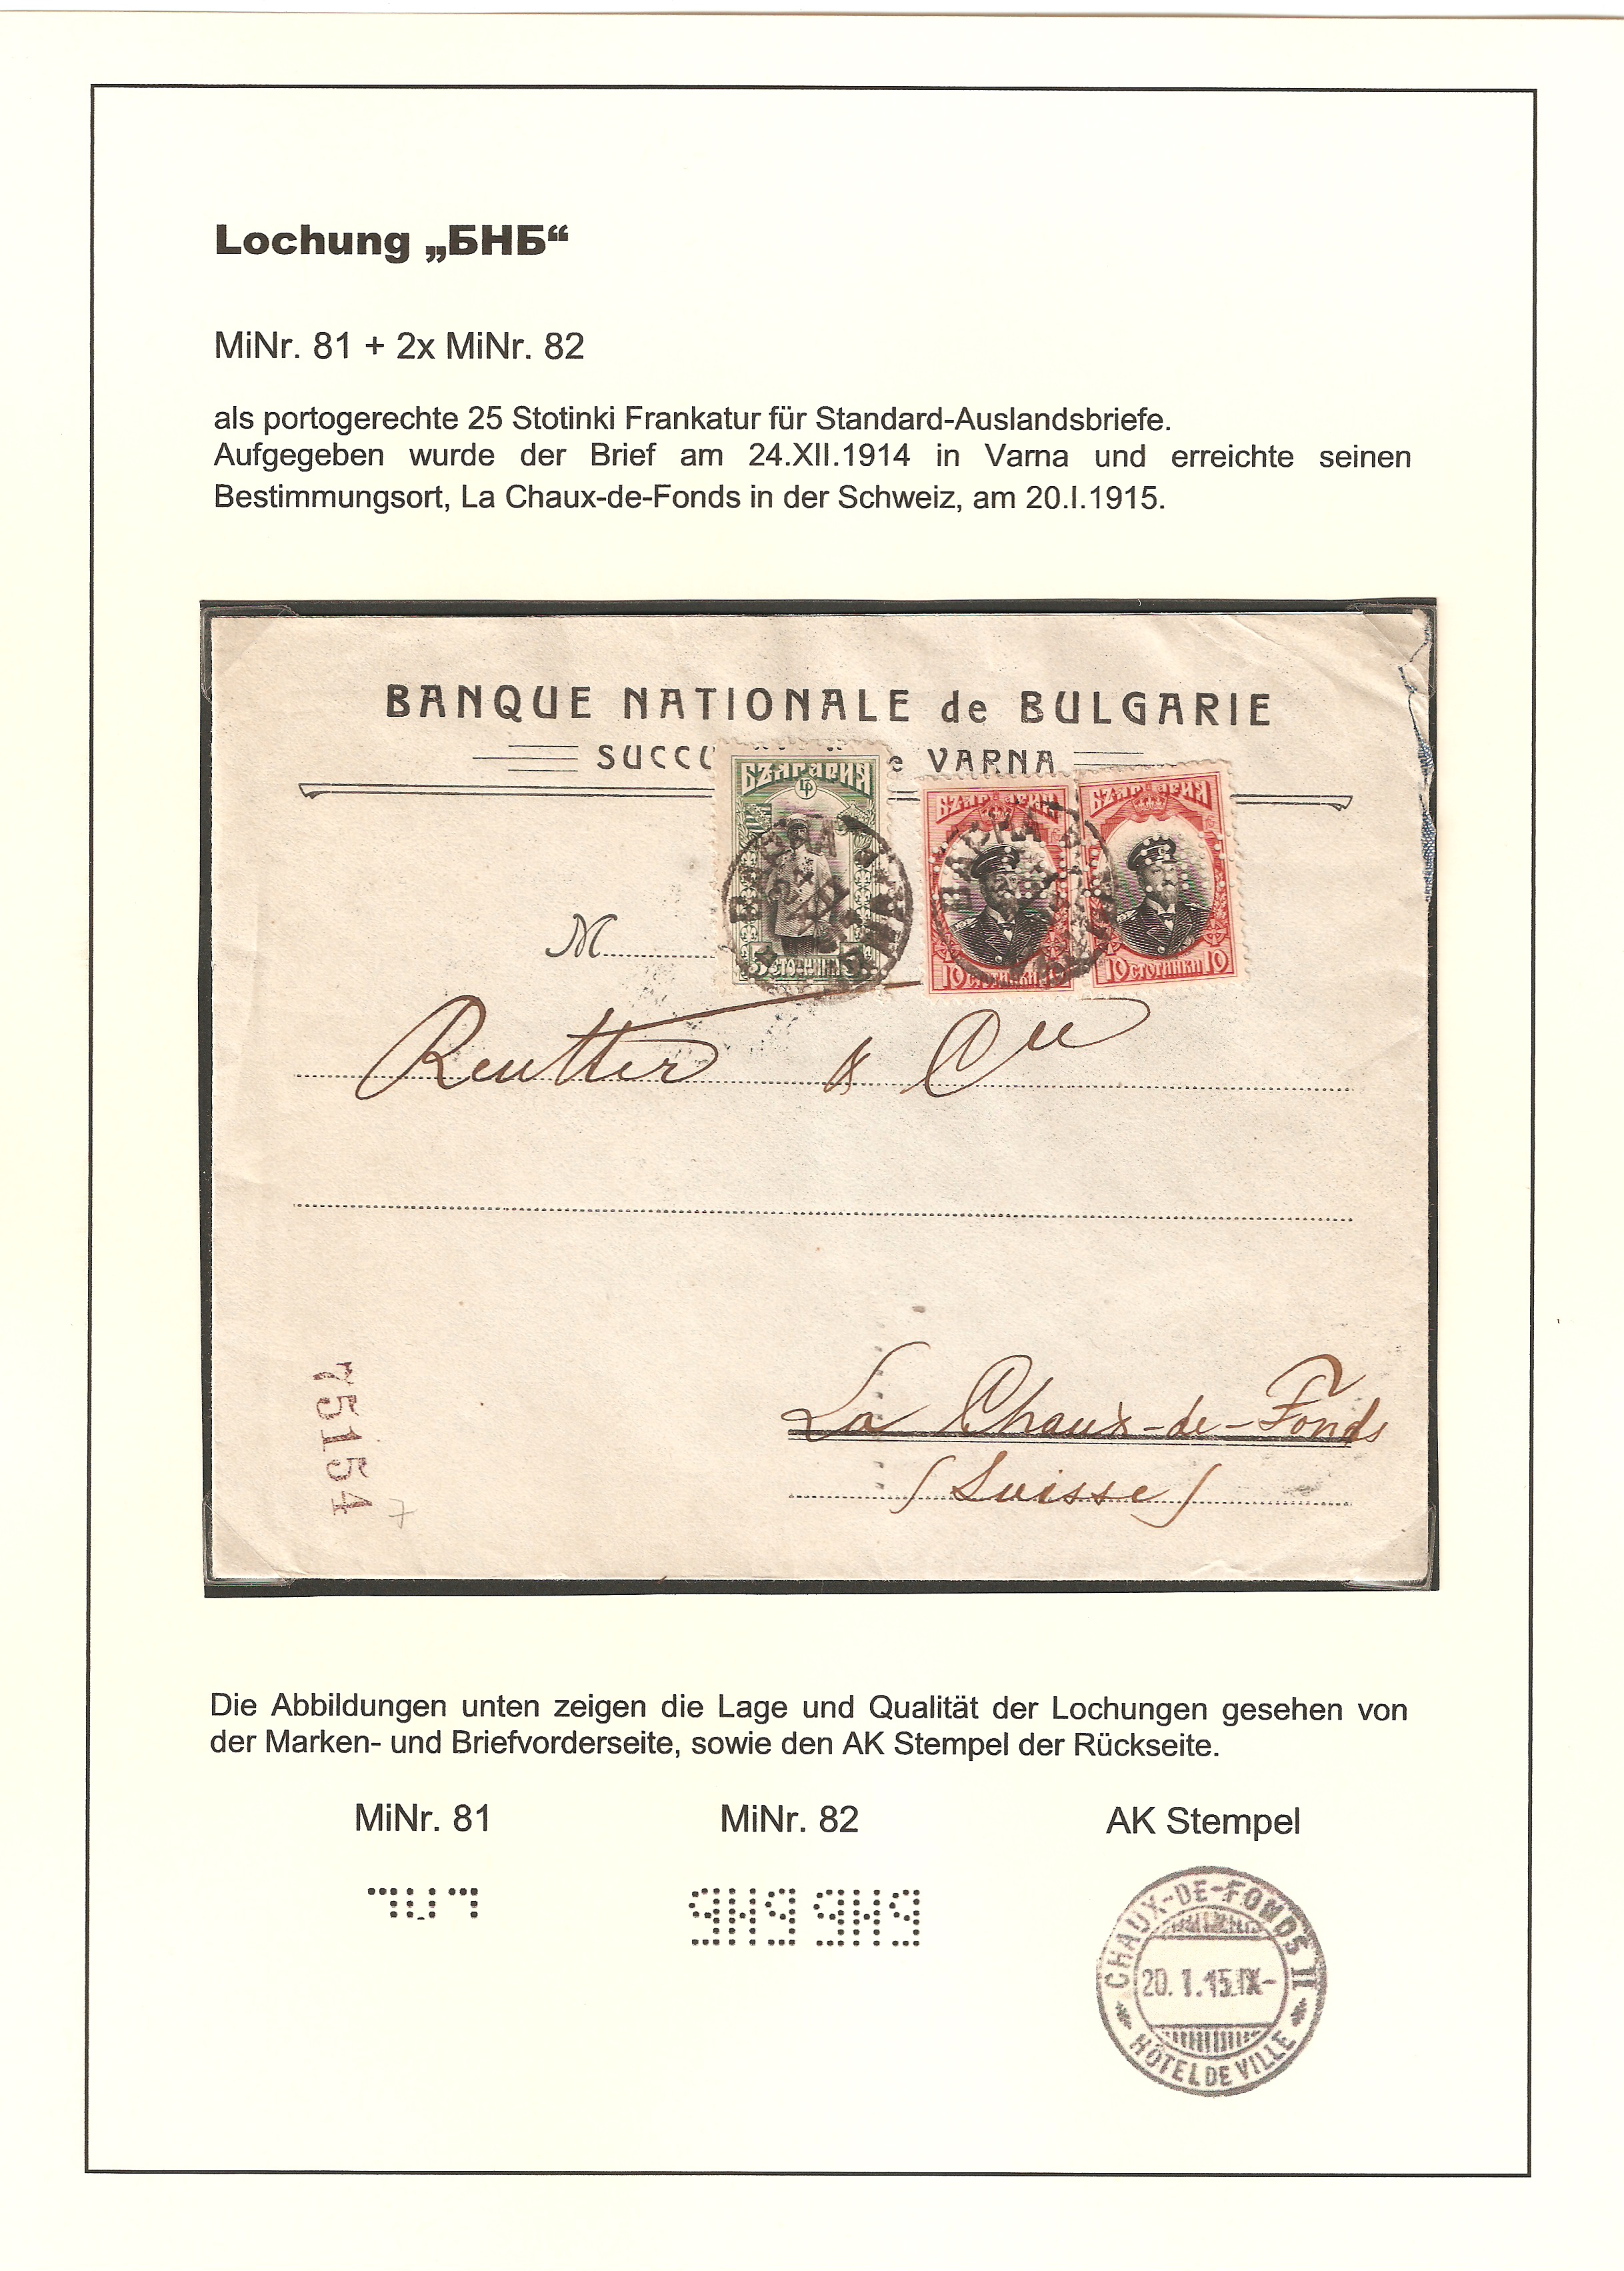 Lochung „БНБ“
MiNr. 81 + 2x MiNr. 82
als portogerechte 25 Stotinki Frankatur für Standard-Auslandsbriefe.
Aufgegeben wurde der Brief am 24.XII.1914 in Varna und erreichte seinen
Bestimmungsort, La Chaux-de-Fonds in der Schweiz, am 20.I.1915.
BANQUE NATIONALE de BULGARIE
SUCCU e VARNA
БЪЛГАРИЯ БЪЛГАРИЯ БЪЛГАРИЯ
ВАРНА
M
5 СТОТИНКИ 10 СТОТИНКИ 10 СТОТИНКИ 10
Reutter & Cie
La Chaux-de-Fonds
(Suisse)
75154
7
Die Abbildungen unten zeigen die Lage und Qualität der Lochungen gesehen von
der Marken- und Briefvorderseite, sowie den AK Stempel der Rückseite.
MiNr. 81 MiNr. 82 AK Stempel
CHAUX-DE-FONDS II
20. 1. 15. IX-
HÔTEL DE VILLE